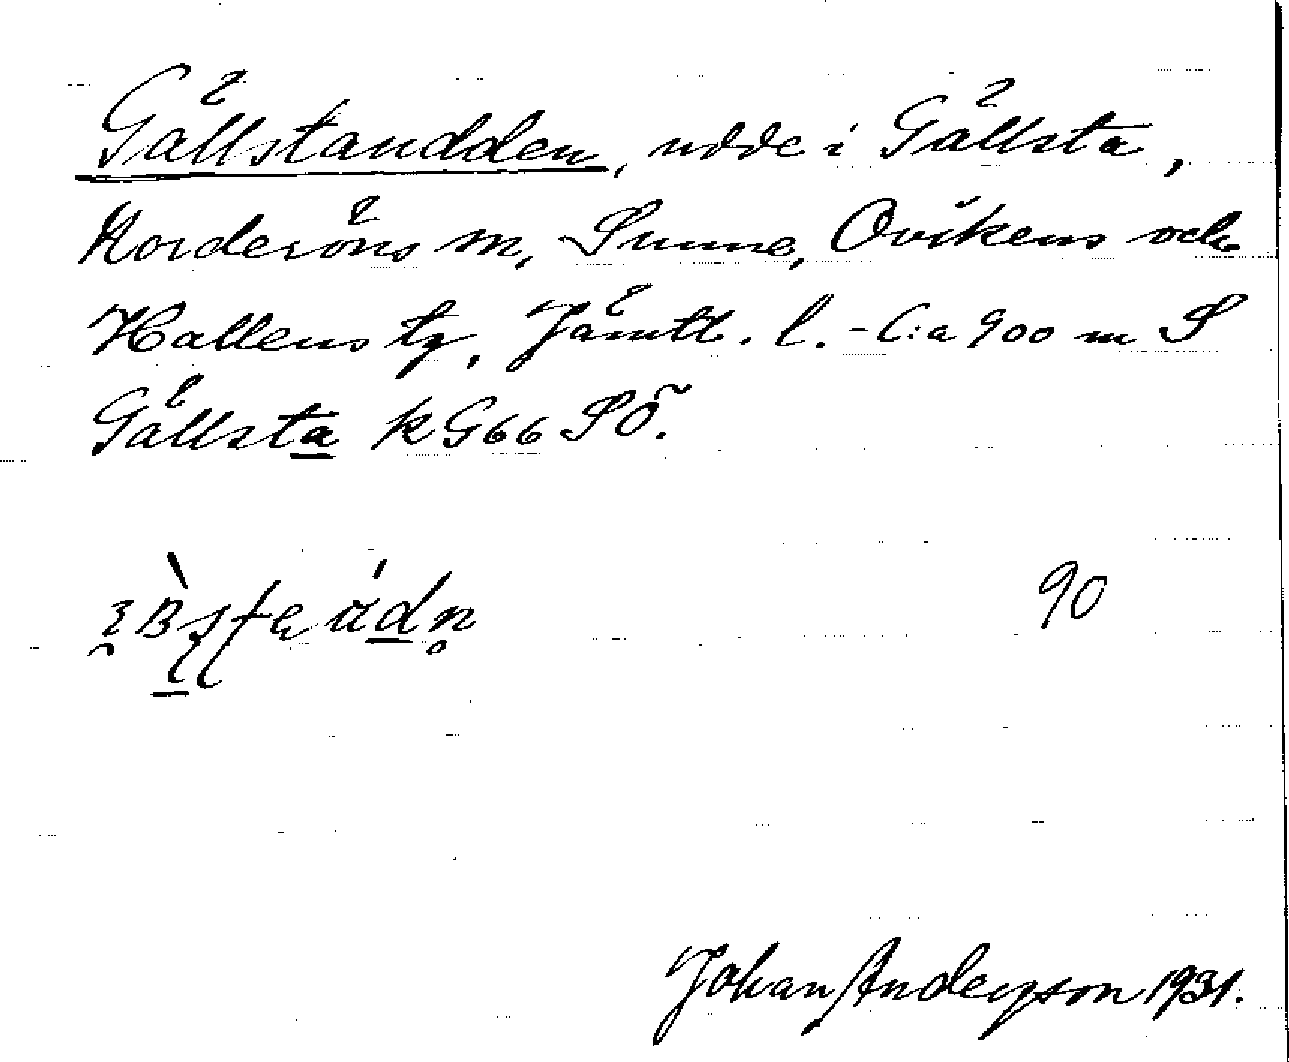 Gällstaudden, udde i Gällsta,
Norderöns m, Sunne, Ovikens och
Hallens tg, Jämtl. l. - C:a 900 m S
Gällsta kG66 SÖ.
90
Johan Anderson 1931.